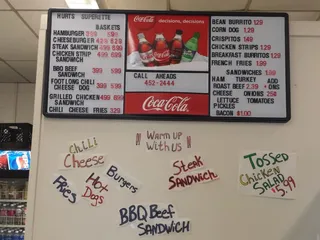 KURTS SUPERETTE
BASKETS
HAMBURGER 359 559
CHEESEBURGER 429 629
STEAK SANDWICH 299 499
CHICKEN STRIP 450
SANDWICH
BBQ BEEF 399 599
SANDWICH
FOOT LONG CHILI
CHEESE DOG 399 599
GRILLED CHICKEN 499 699
SANDWICH
Coca-Cola decisions, decisions
CALL AHEADS
452-2444
Coca-Cola
BEAN BURRITO 1.29
CORN DOG 1.29
CRISPITOS 1.49
CHICKEN STRIPS 1.59
BREAKFAST BURRITOS
FRENCH FRIES 1.69
SANDWICHES 1.89
HAM TURKEY ADD
ROAST BEEF 2.39 + ONS
CHEESE ONIONS 25¢
LETTUCE TOMATOES
PICKLES
BACON $1.00
WARM UP
WITH US
Chili
Cheese
Fries
Hot
Dogs
Burgers
BBQ Beef
SANDWICH
Steak
SANDWICH
Tossed
Chicken
SALAD
$5.99